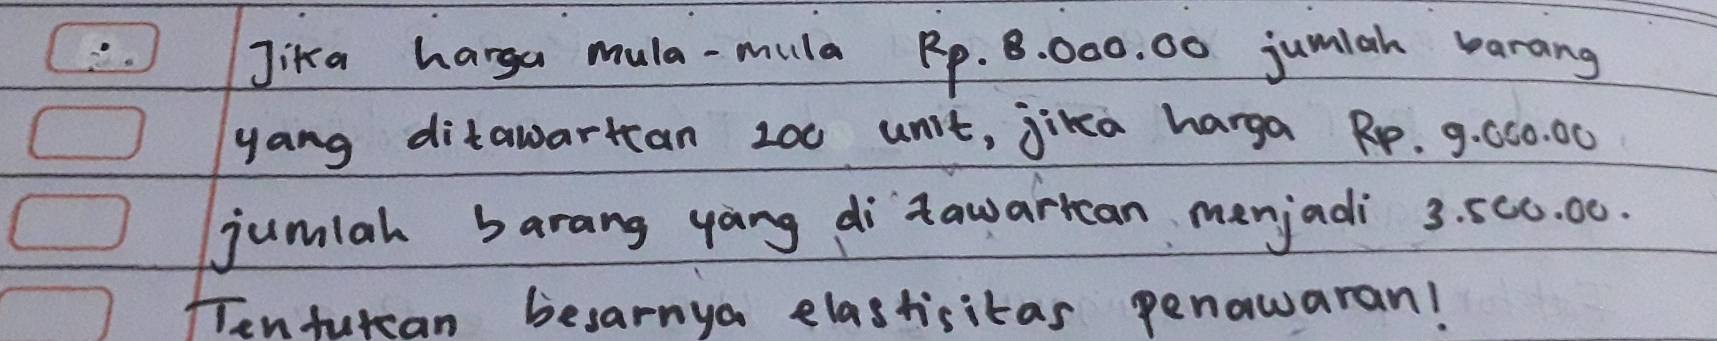 Jika harga mula-mula Rp. 8.000.00 jumlah barang
yang ditawarkan 200 unit, jika harga Rp. 9.000.00
jumlah barang yang di tawarkan menjadi 3.500.00.
Tentukan besarnya elastisitas penawaran!